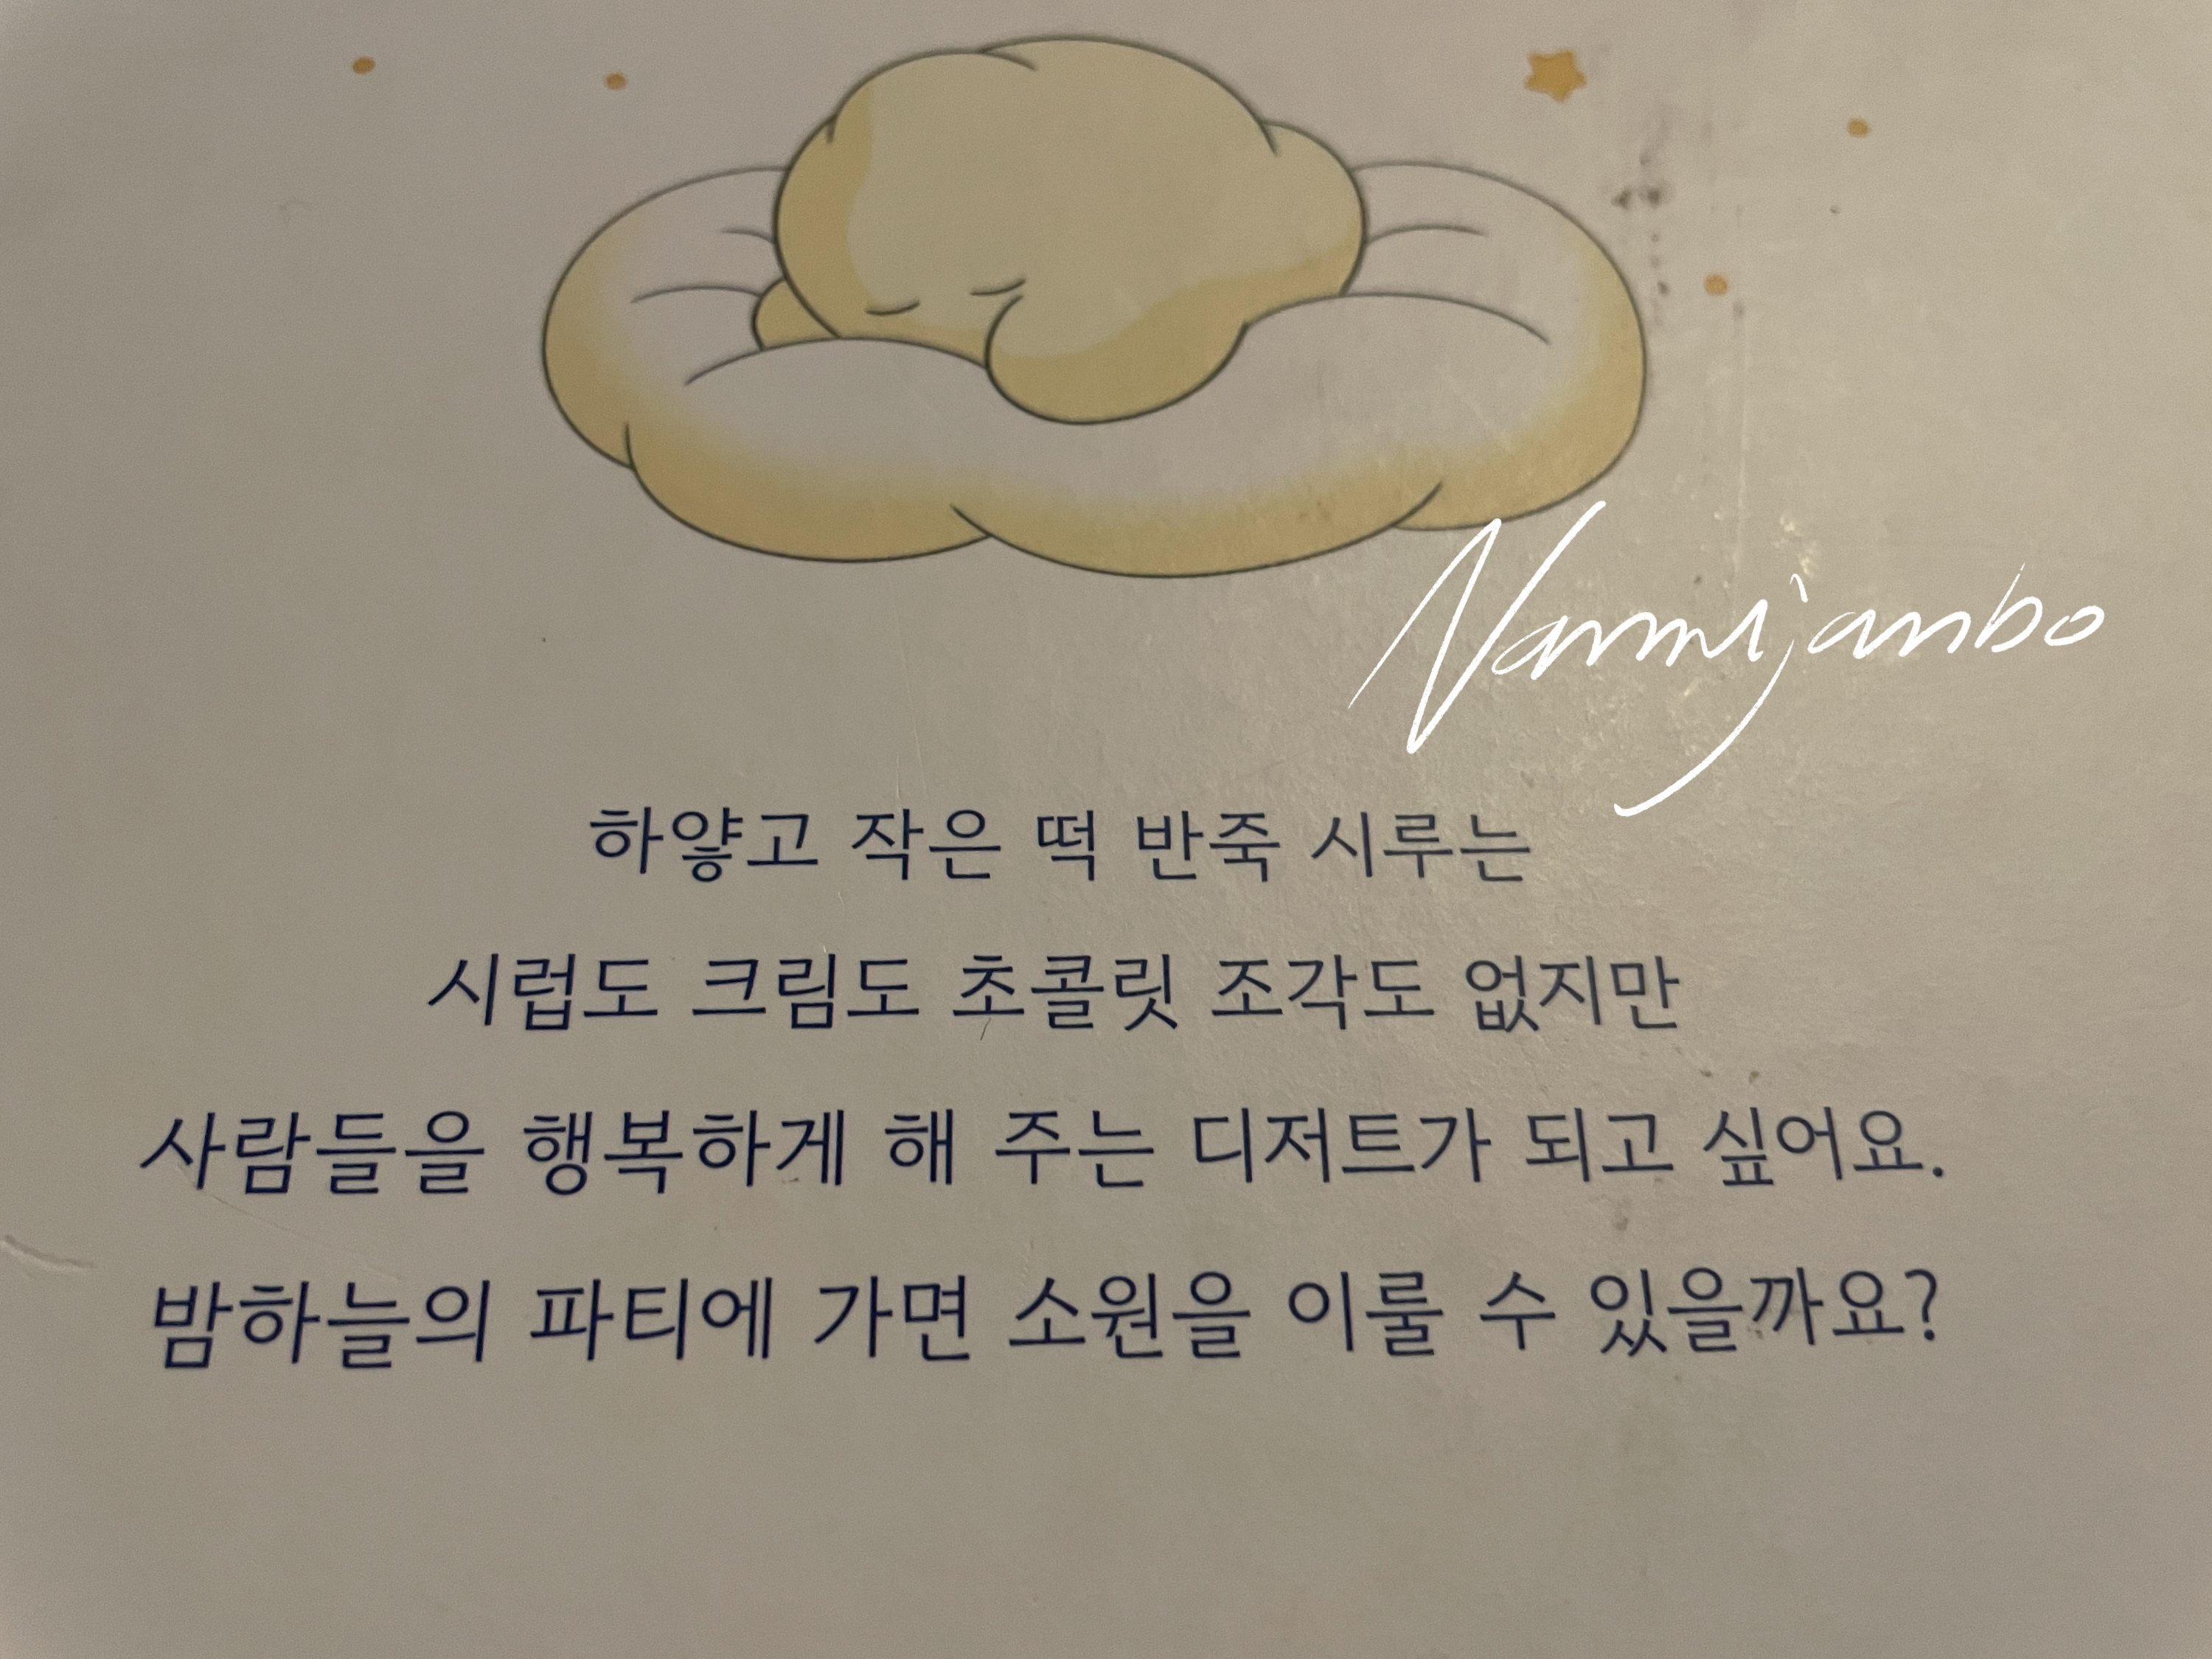 Nannijanbo
하얗고 작은 떡 반죽 시루는
시럽도 크림도 초콜릿 조각도 없지만
사람들을 행복하게 해 주는 디저트가 되고 싶어요.
밤하늘의 파티에 가면 소원을 이룰 수 있을까요?